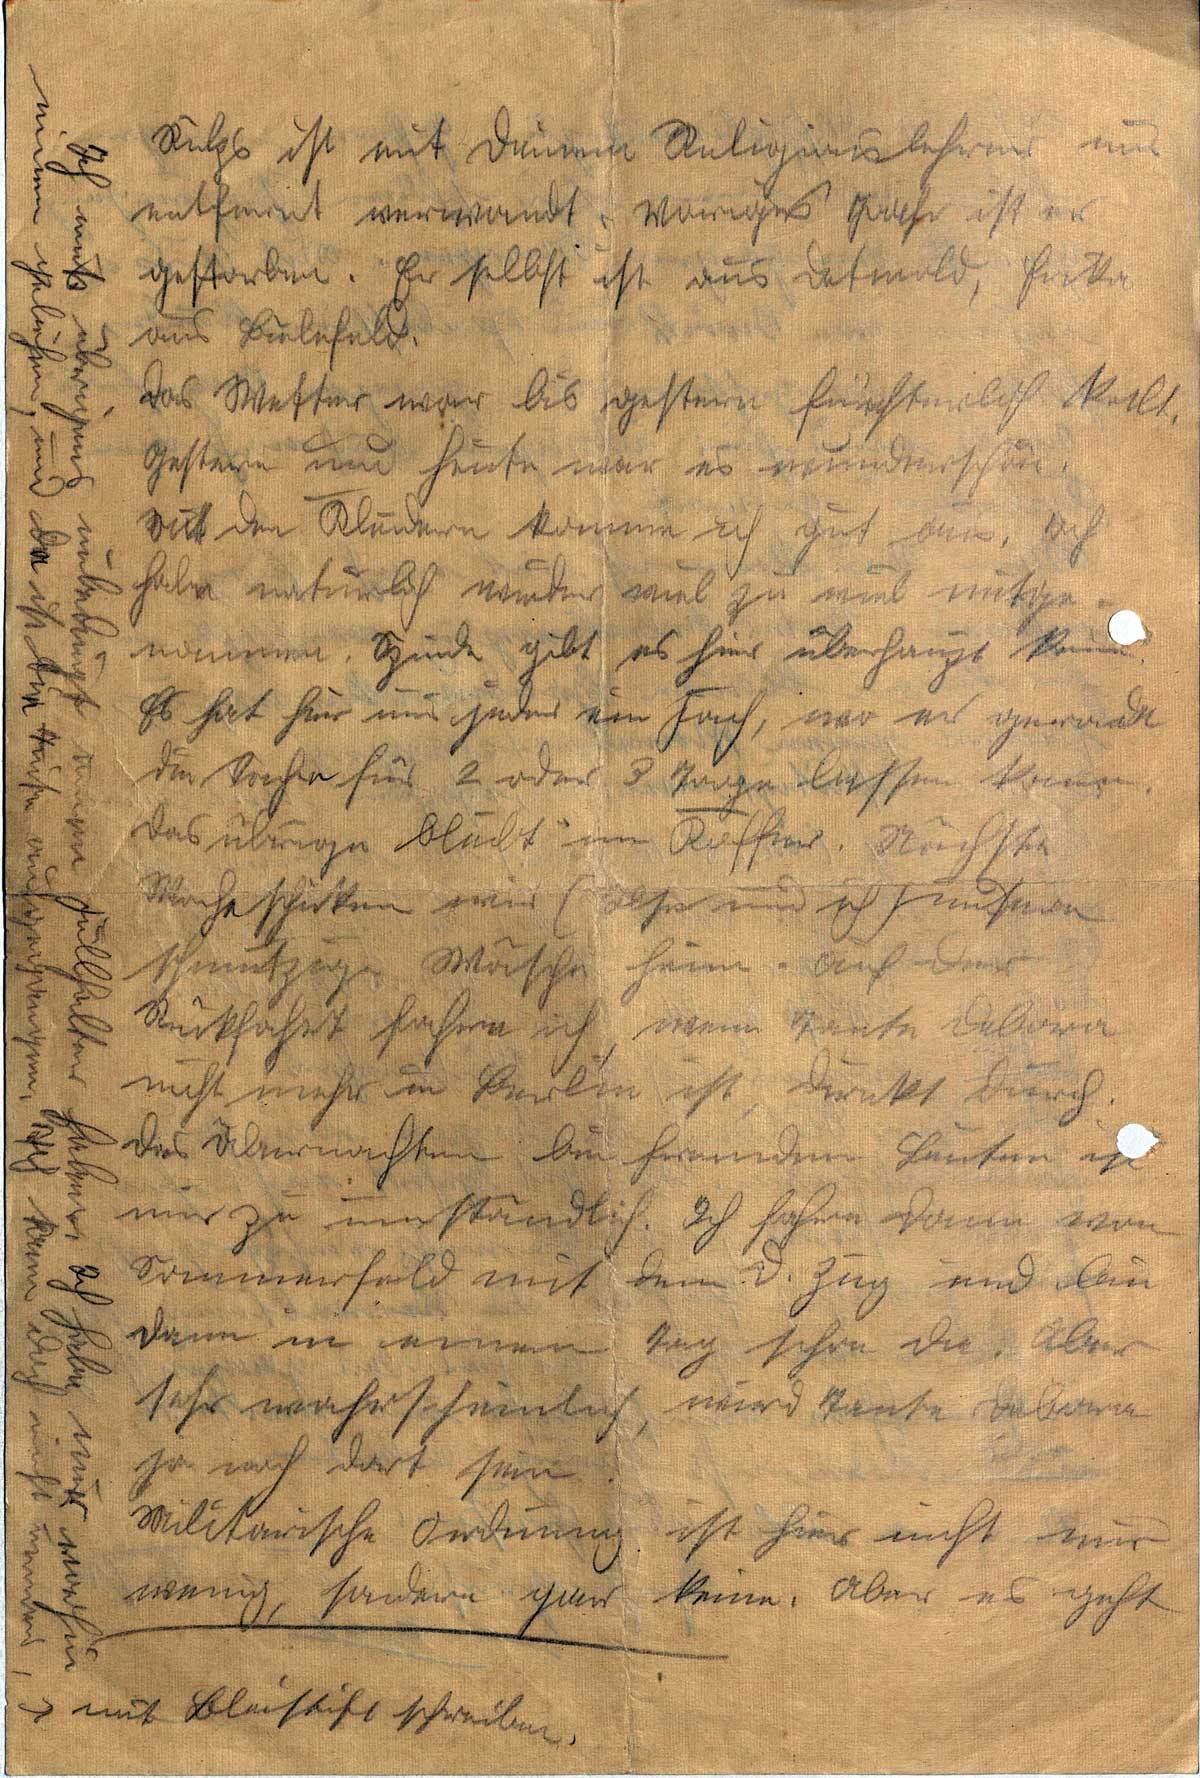 ist mit Deinem Religionslehrer nur
entfernt verwandt. Voriges Jahr ist er
gestorben. Er selbst ist aus Detmold, Erika
aus Bielefeld.
Das Wetter war bis gestern fürchterlich kalt.
Gestern und heute war es wunderschön.
Mit den Kleidern komme ich gut aus. Ich
habe natürlich wieder viel zu viel mitge-
nommen. Spinde gibt es hier überhaupt keine.
Es hat hier nur jeder ein Fach, wo er gerade
die Sachen für 2 oder 3 Tage lassen kann.
Das übrige bleibt im Koffer. Nächste
Woche schicken wir ( und ich) unsere
schmutzige Wäsche heim. Auf der
Rückfahrt fahre ich, wenn Tante Debora
nicht mehr in Berlin ist, direkt durch.
Das Übernachten bei fremden Leuten ist
mir zu umständlich. Ich fahre dann von
Sommerfeld mit dem D. Zug und bin
dann in einem Tag schon da. Aber
sehr wahrscheinlich, wird Tante Debora
ja noch dort sein.
Militärische Ordnung ist hier nicht nur
wenig, sondern gar keine. Aber es geht
Ich muß übrigens unbedingt einen Füllhalter haben. Ich habe mir vorhin
einen geliehen, und da ist die Tinte ausgegangen. Ich kann doch nicht immer
mit Bleistift schreiben.